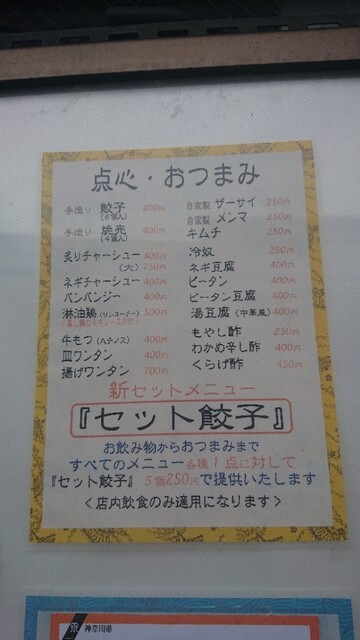 点心・おつまみ
手造り 餃子 400円
(6個入)
手造り 焼売 400円
(4個入)
炙りチャーシュー 400円
(大) 750円
ネギチャーシュー 400円
バンバンジー 400円
淋油鶏(リンユーチー) 500円
牛もつ(ハチノス) 400円
皿ワンタン 400円
揚げワンタン 700円
自家製 ザーサイ 250円
自家製 メンマ 250円
キムチ 250円
冷奴 250円
ネギ豆腐 400円
ピータン 400円
ピータン豆腐 400円
湯豆腐(中華風) 400円
もやし酢 250円
わかめ辛し酢 400円
くらげ酢 450円
新セットメニュー
『セット餃子』
お飲み物からおつまみまで
すべてのメニュー各種1点に対して
『セット餃子』5個250円で提供いたします
<店内飲食のみ適用になります>
神奈川県